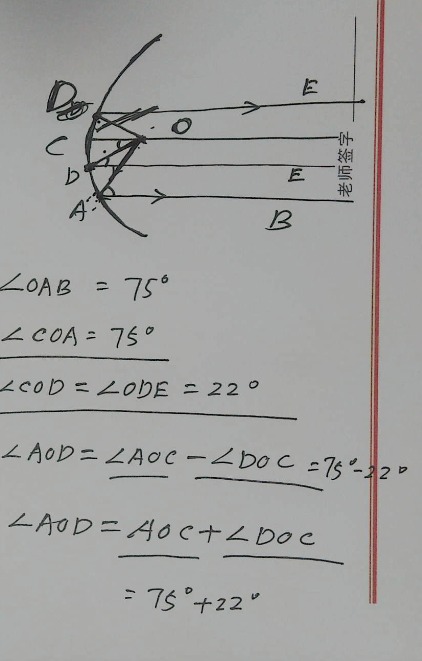 D
E
C
O
D
E
A
B
老师签字
∠OAB = 75°
∠COA = 75°
∠COD = ∠ODE = 22°
∠AOD = ∠AOC - ∠DOC = 75° - 22°
∠AOD = AOC + ∠DOC
= 75° + 22°